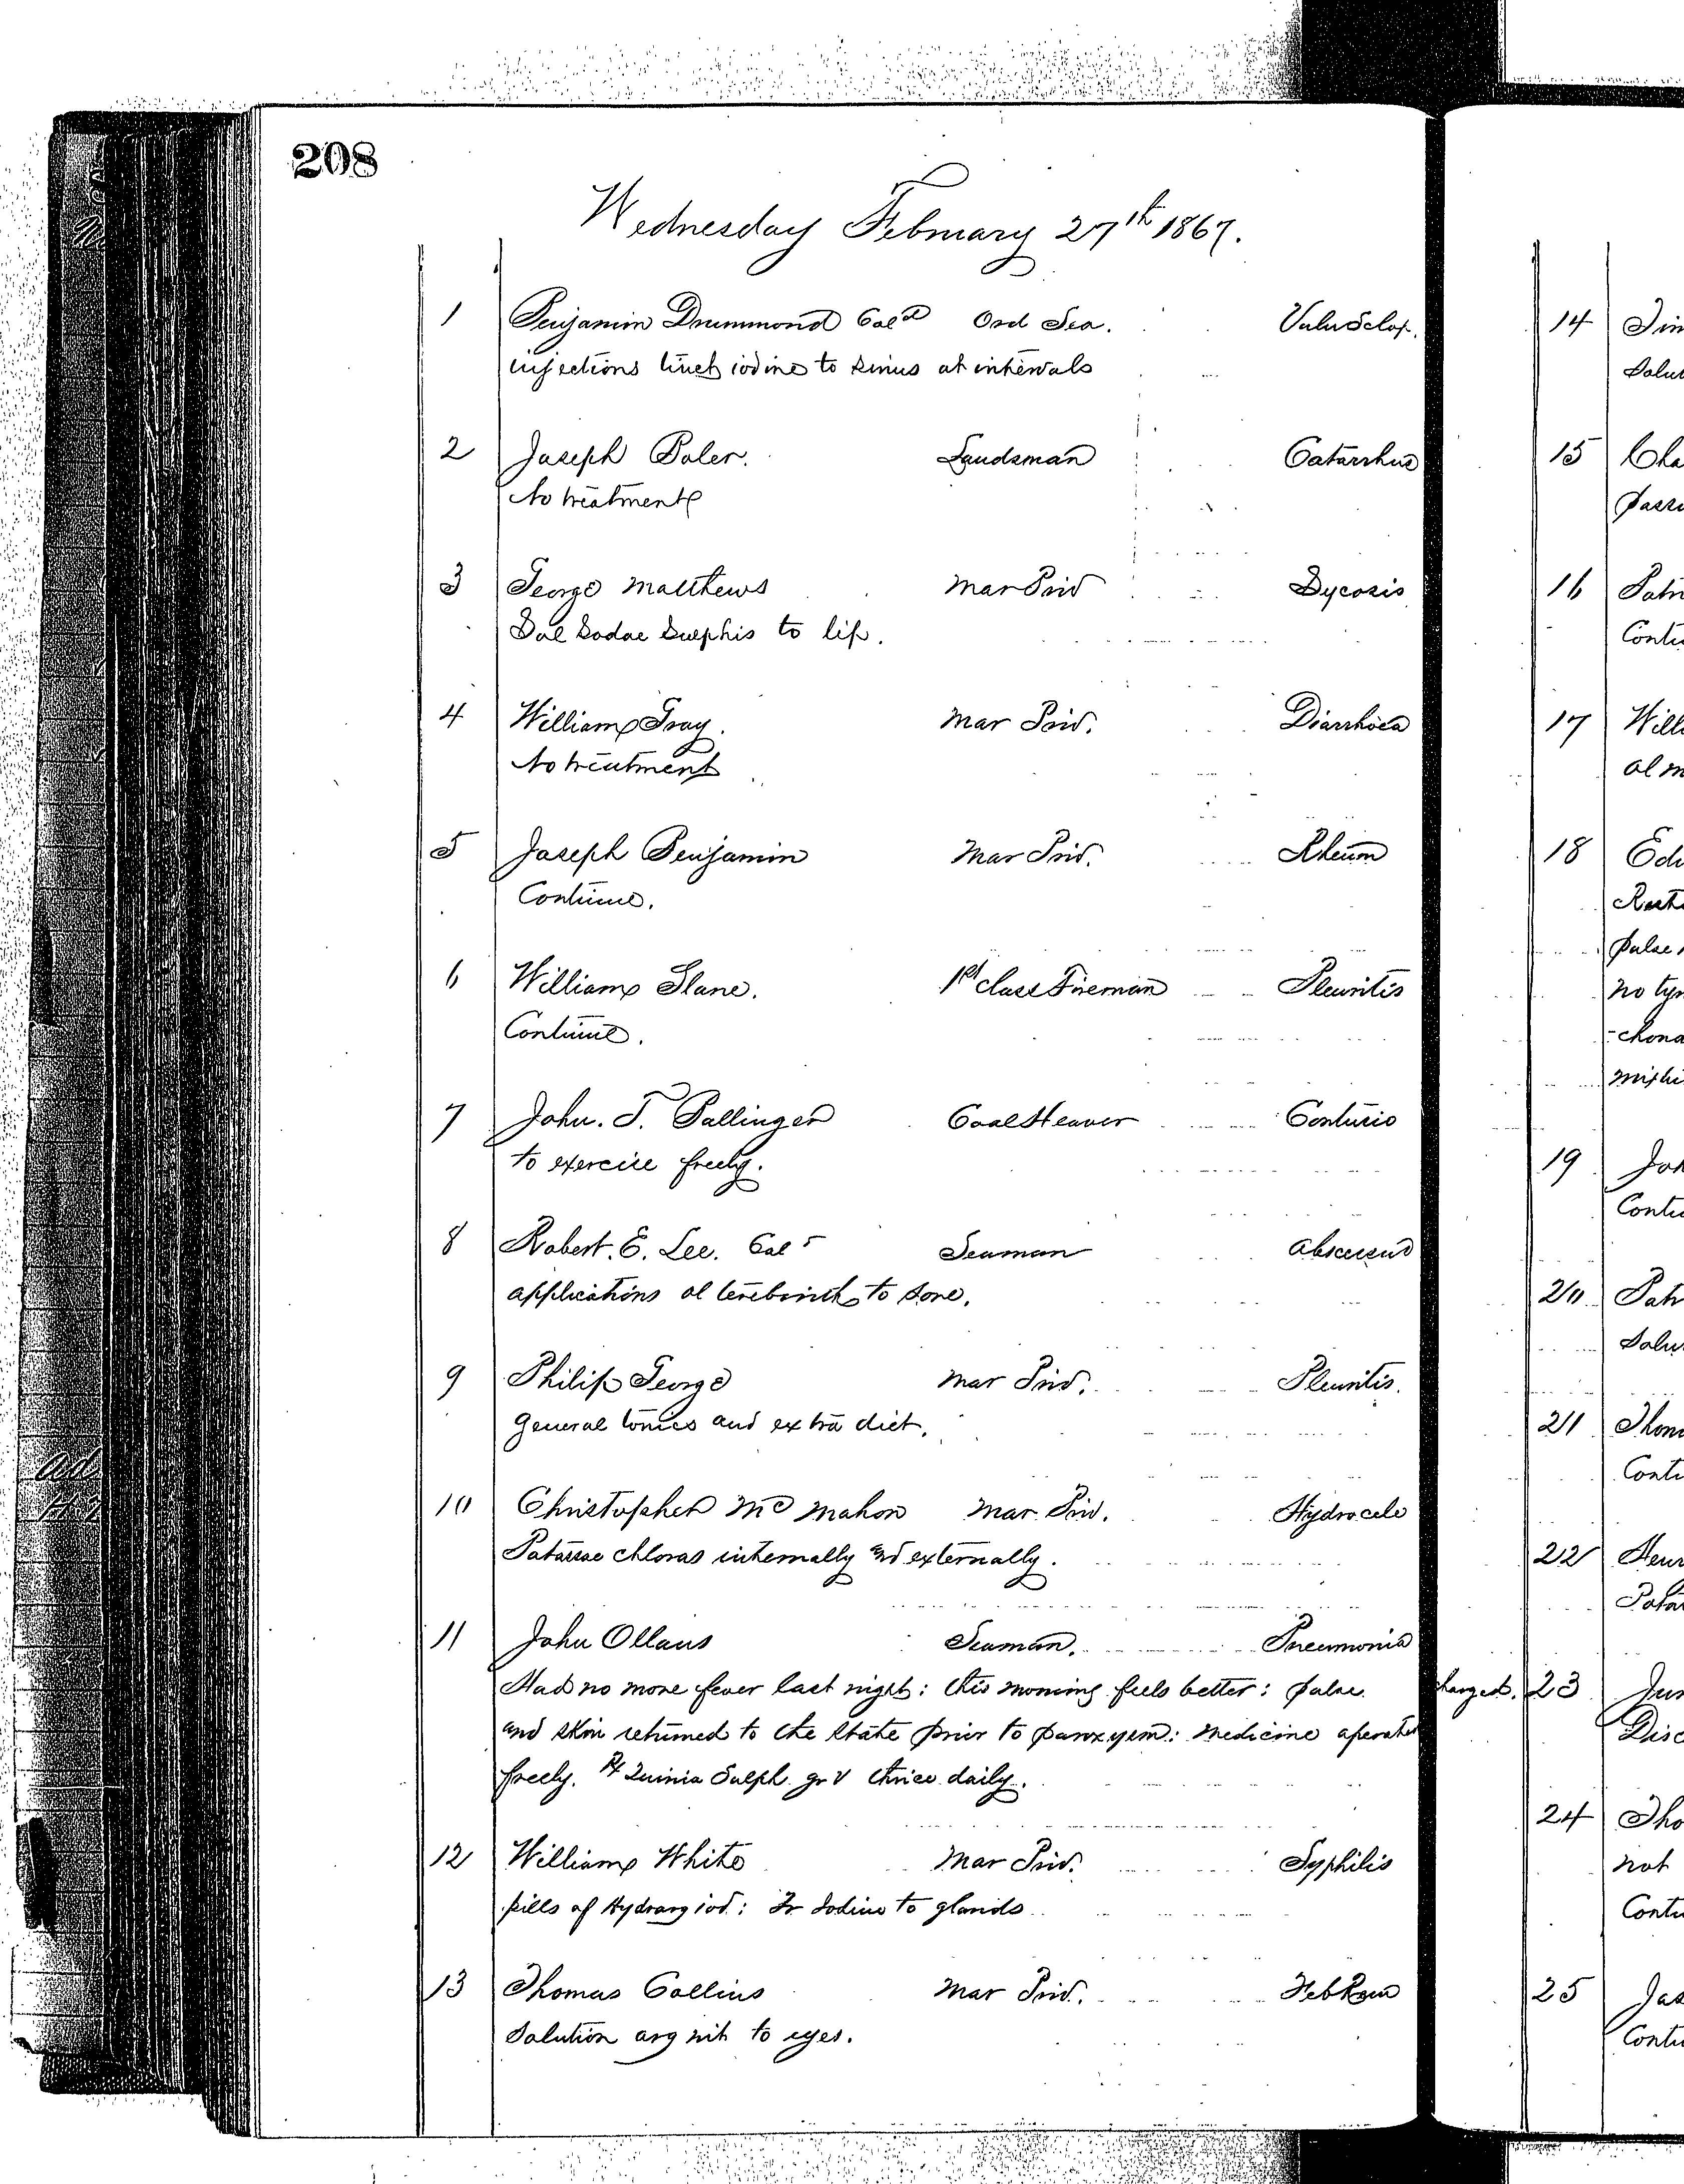 208
Wednesday February 27th 1867.
1 Benjamin Drummond Cold Ord Sea. Vuln Sclop.
injections tinct iodine to sinus at intervals
2 Joseph Boler. Landsman Catarrhus
No treatment
3 George Matthews Mar Priv Sycosis
Sol Sodae Sulphis to lip.
4 William Gray. Mar Priv. Diarrhoea
No treatment
5 Joseph Benjamin Mar Priv. Rheum
Continue.
6 William Slane. 1st class Fireman Pleuritis
Continue.
7 John. T. Ballinger Coal Heaver Contusio
to exercise freely.
8 Robert. E. Lee. Col Seaman Abscessus
applications ol terebinth to sore.
9 Philip George Mar Priv. Pleuritis.
General tonics and extra diet.
10 Christopher Mc Mahon Mar. Priv. Hydrocele
Potassae chloras internally and externally.
11 John Ollaus Seaman. Pneumonia
Had no more fever last night: this morning feels better: pulse
and skin returned to the state prior to paroxysm: medicine operated
freely. ℞ Quinia Sulph. gr V thrice daily.
12 William White Mar Priv. Syphilis
pills of Hydrarg iod: Tr Iodine to glands
13 Thomas Collins Mar Priv. Feb Rem
Solution arg nit to eyes.
14
15 Cha
16 Patr
Conti
17 Will
ol m
18 Edw
pulse
no tym
-chona
19 Joh
Conti
20 Patr
Solu
21 Thom
Conti
22 Henr
Potas
charged. 23
Disc
24 Tho
not
Conti
25 Jas
Conti